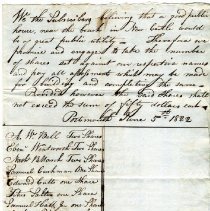 We the Subscribers believing that a good public
house, near the beach in New Castle would
be of great public utility - Therefore we
promise and engage to take the number
of shares set against our respective names
and pay all assessments which may be made
for building and completing the same -
Provided however the said Shares shall
not exceed the sum of fifty dollars each
Portsmouth June 5th 1822
A. W. Bell Two Shares
Eben Wentworth Two Shares
Two Shares
Samuel Cushman One Share
Edward Cutts one Share
one Share
Samuel one Share